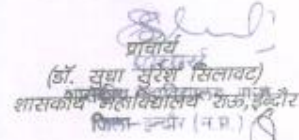 प्राचार्य
(डॉ. सुधा सुरेश सिलावट)
शासकीय महाविद्यालय राऊ, इन्दौर
जिला-इन्दौर (म.प्र.)